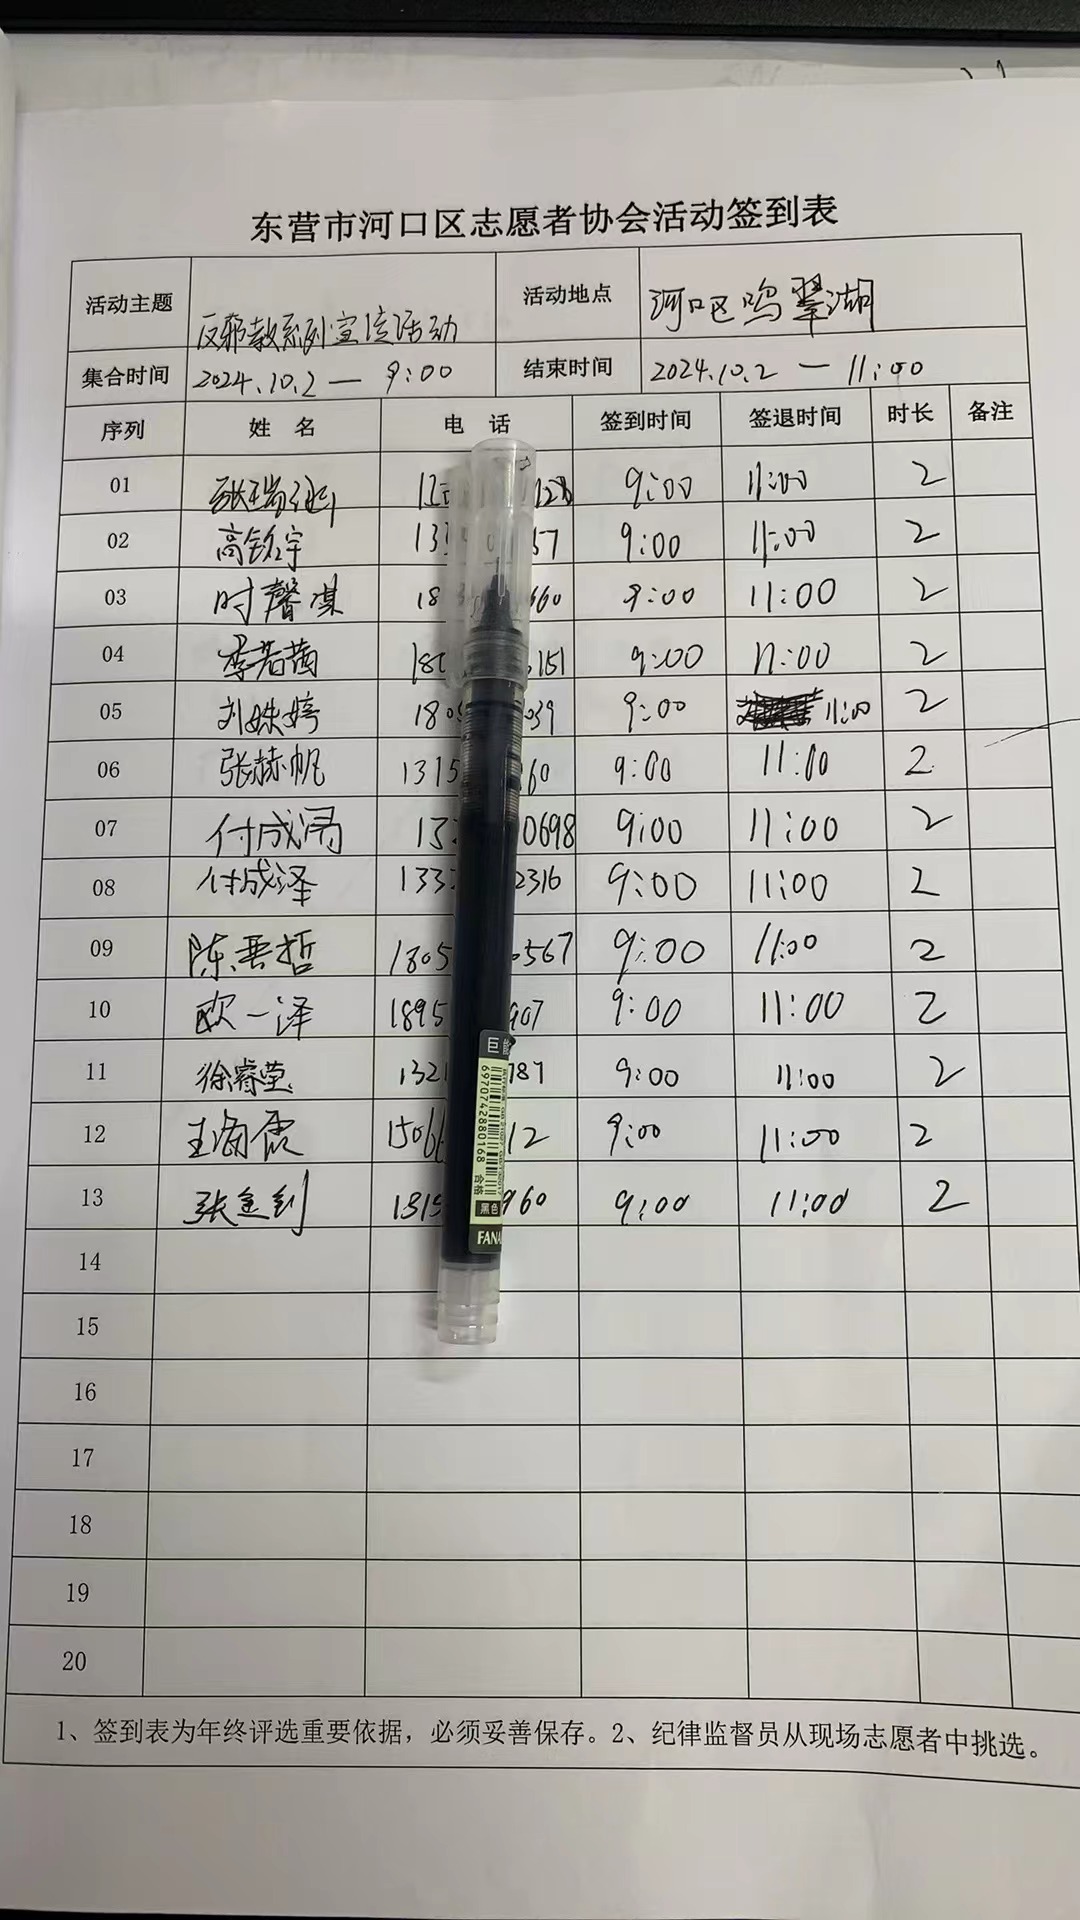 东营市河口区志愿者协会活动签到表
活动主题 反邪教系列宣传活动 活动地点 河口区鸣翠湖
集合时间 2024.10.2 — 9:00 结束时间 2024.10.2 — 11:00
序列 姓 名 电 话 签到时间 签退时间 时长 备注
01 9:00 11:00 2
02 高铭宇 133 57 9:00 11:00 2
03 时馨淇 18 660 9:00 11:00 2
04 李若茜 18 151 9:00 11:00 2
05 刘姝婷 180 039 9:00 11:00 2
06 张赫帆 1315 60 9:00 11:00 2
07 付成 13 0698 9:00 11:00 2
08 付成泽 133 2316 9:00 11:00 2
09 陈 哲 1805 0567 9:00 11:00 2
10 欧一泽 1895 907 9:00 11:00 2
11 徐睿莹 1321 787 9:00 11:00 2
12 王 霞 1506 12 9:00 11:00 2
13 张 1315 960 9:00 11:00 2
14
15
16
17
18
19
20
1、签到表为年终评选重要依据，必须妥善保存。2、纪律监督员从现场志愿者中挑选。
巨能
6970742880168
合格
黑色
FANA